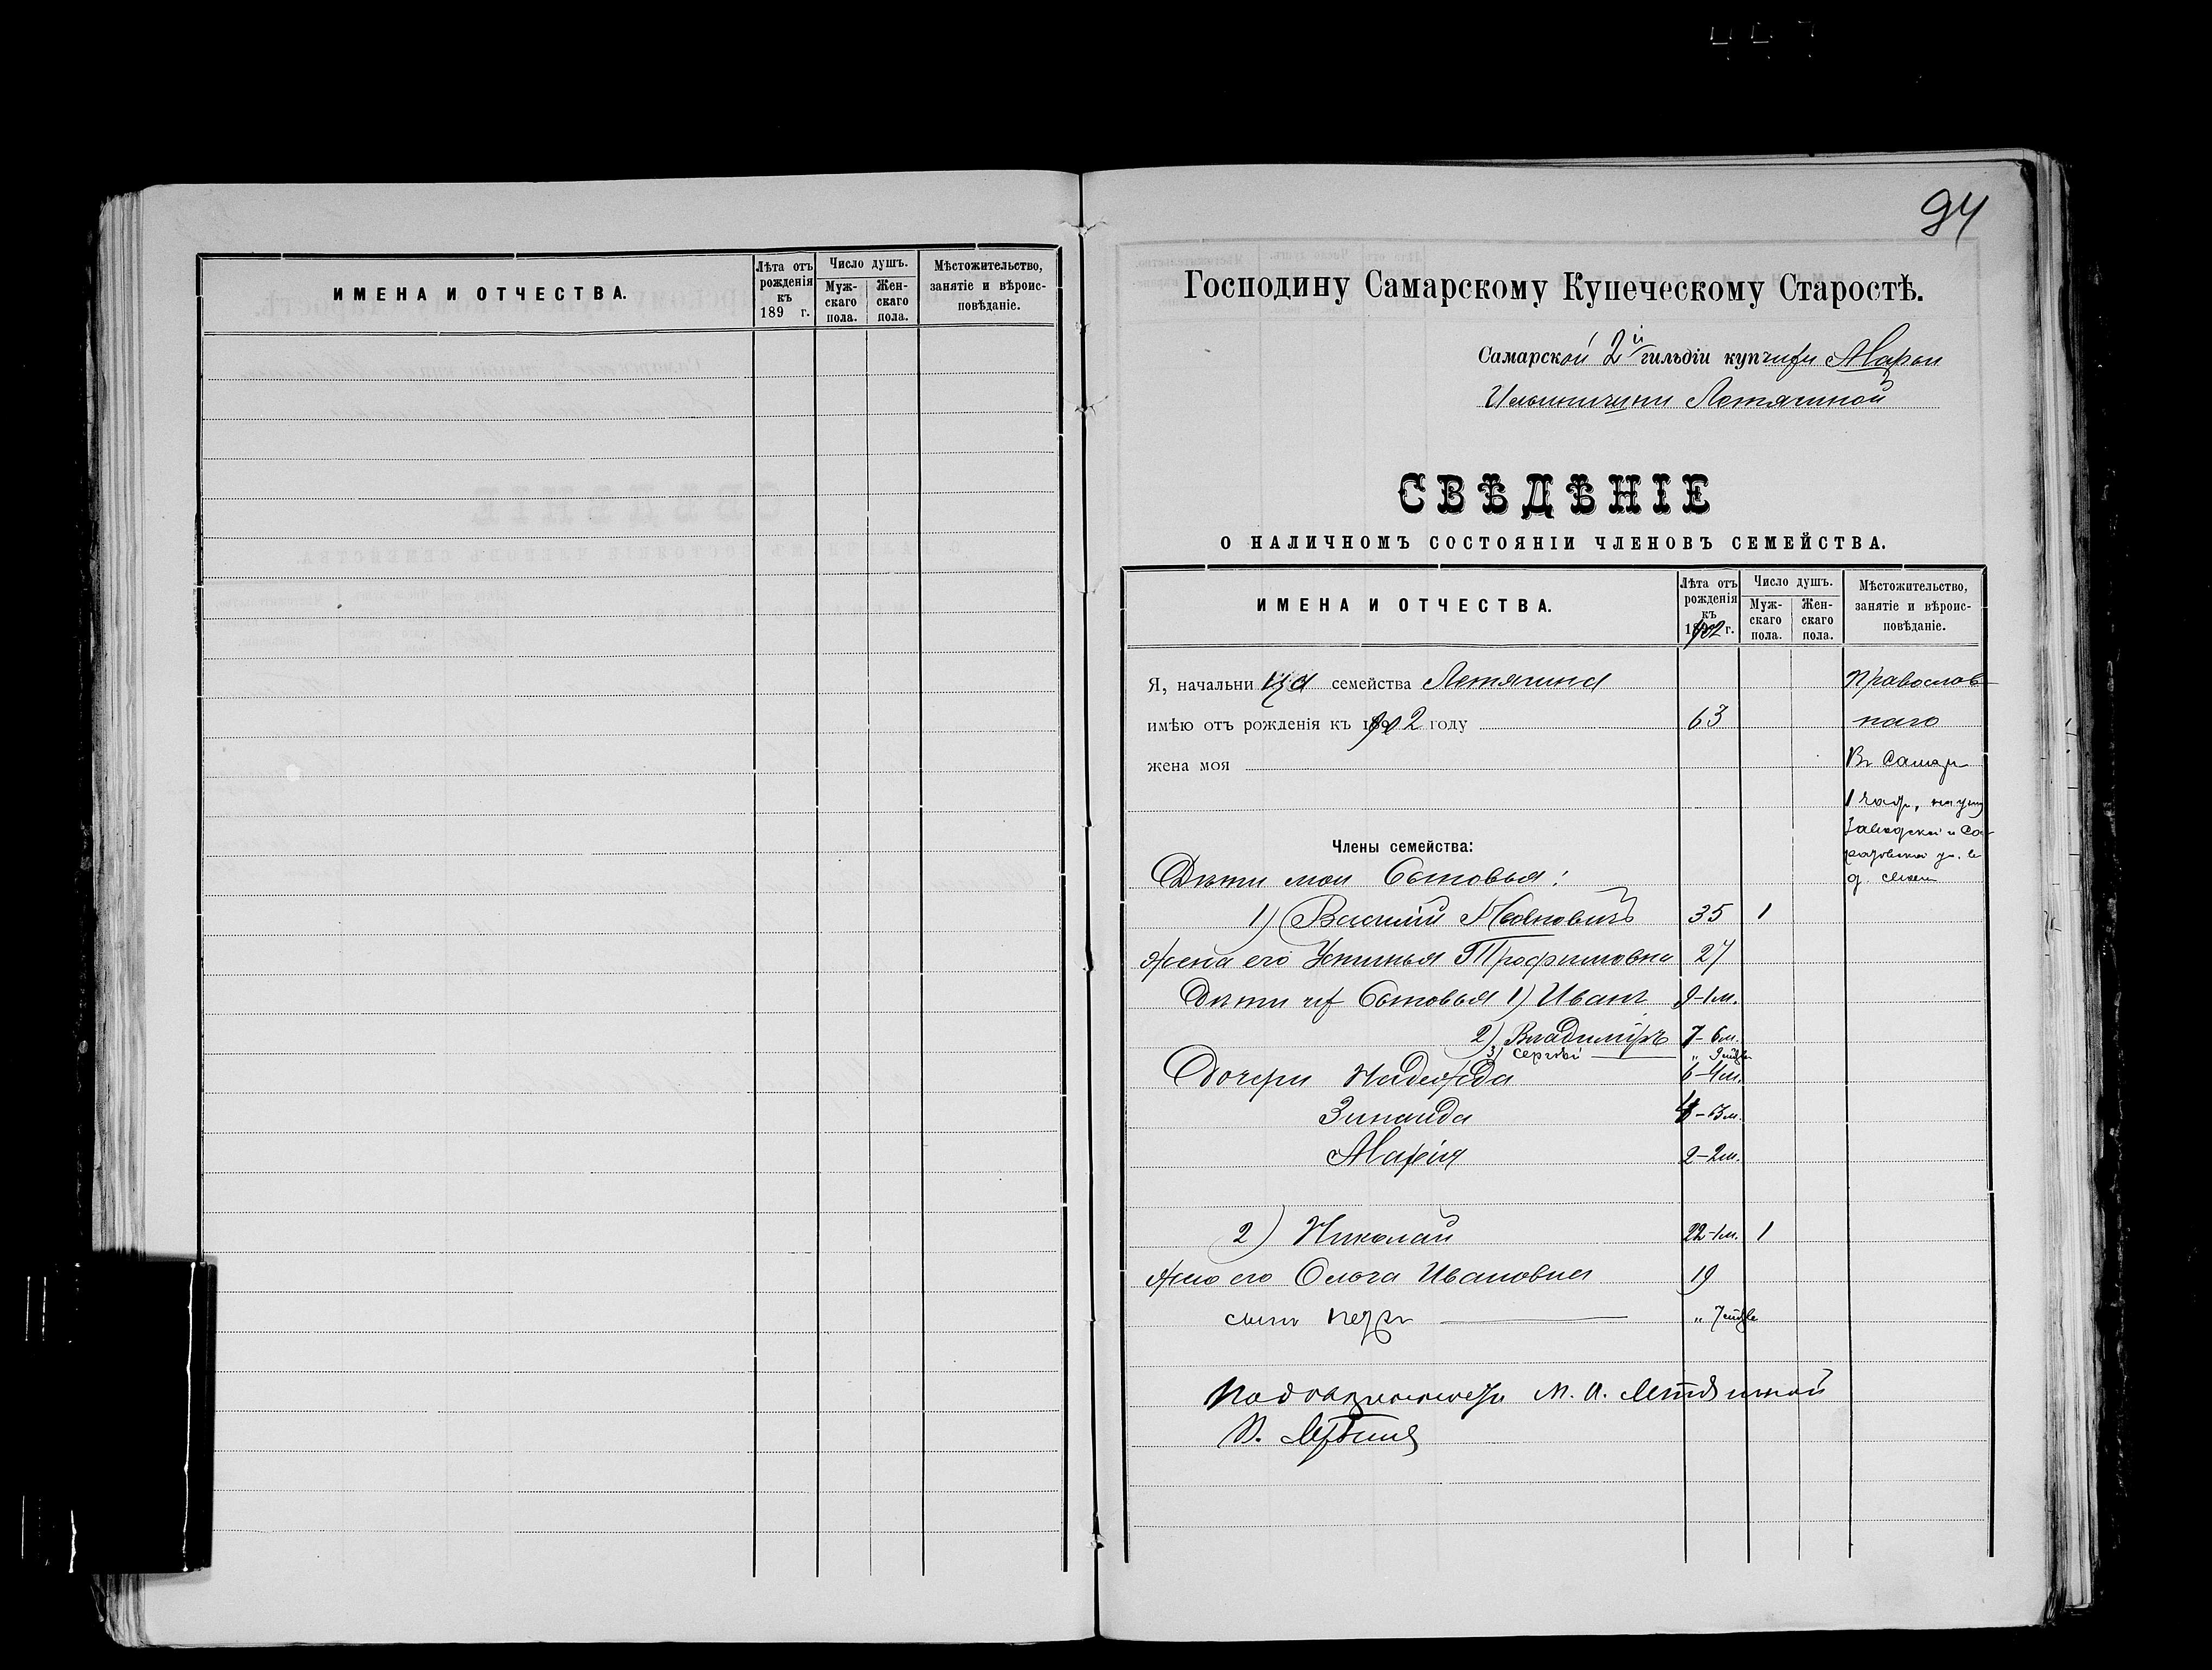 ИМЕНА И ОТЧЕСТВА.
Лѣта отъ рожденія къ 189 г.
Число душъ.
Мужскаго пола.
Женскаго пола.
Мѣстожительство, занятіе и вѣроисповѣданіе.
94
Господину Самарскому Купеческому Старостѣ.
Самарской 2й гильдіи купчихи Марьи
Ильиничны Летягиной
СВѢДѢНІЕ
О НАЛИЧНОМЪ СОСТОЯНІИ ЧЛЕНОВЪ СЕМЕЙСТВА.
ИМЕНА И ОТЧЕСТВА.
Лѣта отъ рожденія къ 1902 г.
Число душъ.
Мужскаго пола.
Женскаго пола.
Мѣстожительство, занятіе и вѣроисповѣданіе.
Я, начальница семейства Летягина Православ-
имѣю отъ рожденія къ 1902 году 63 наго
жена моя Въ Самарѣ
1 част, на углу
Заводской и Са-
ратовской ул. въ
Члены семейства:
Дѣти мои Сыновья: д. своемъ
1) Василій Ивановичъ 35 1
Жена его Устинья Трофимовна 27
Дѣти их Сыновья 1) Иванъ 9-1м.
2) Владиміръ 7-6м.
3) Сергѣй " 9 мѣс
Дочери Надежда 6-4м.
Зинаида 4-3м.
Марія 2-2м.
2) Николай 22-1м. 1
Жена его Ольга Ивановна 19
сынъ Петръ " 7 мѣс
По довѣренности М. И. Летягиной
В. Летягинъ